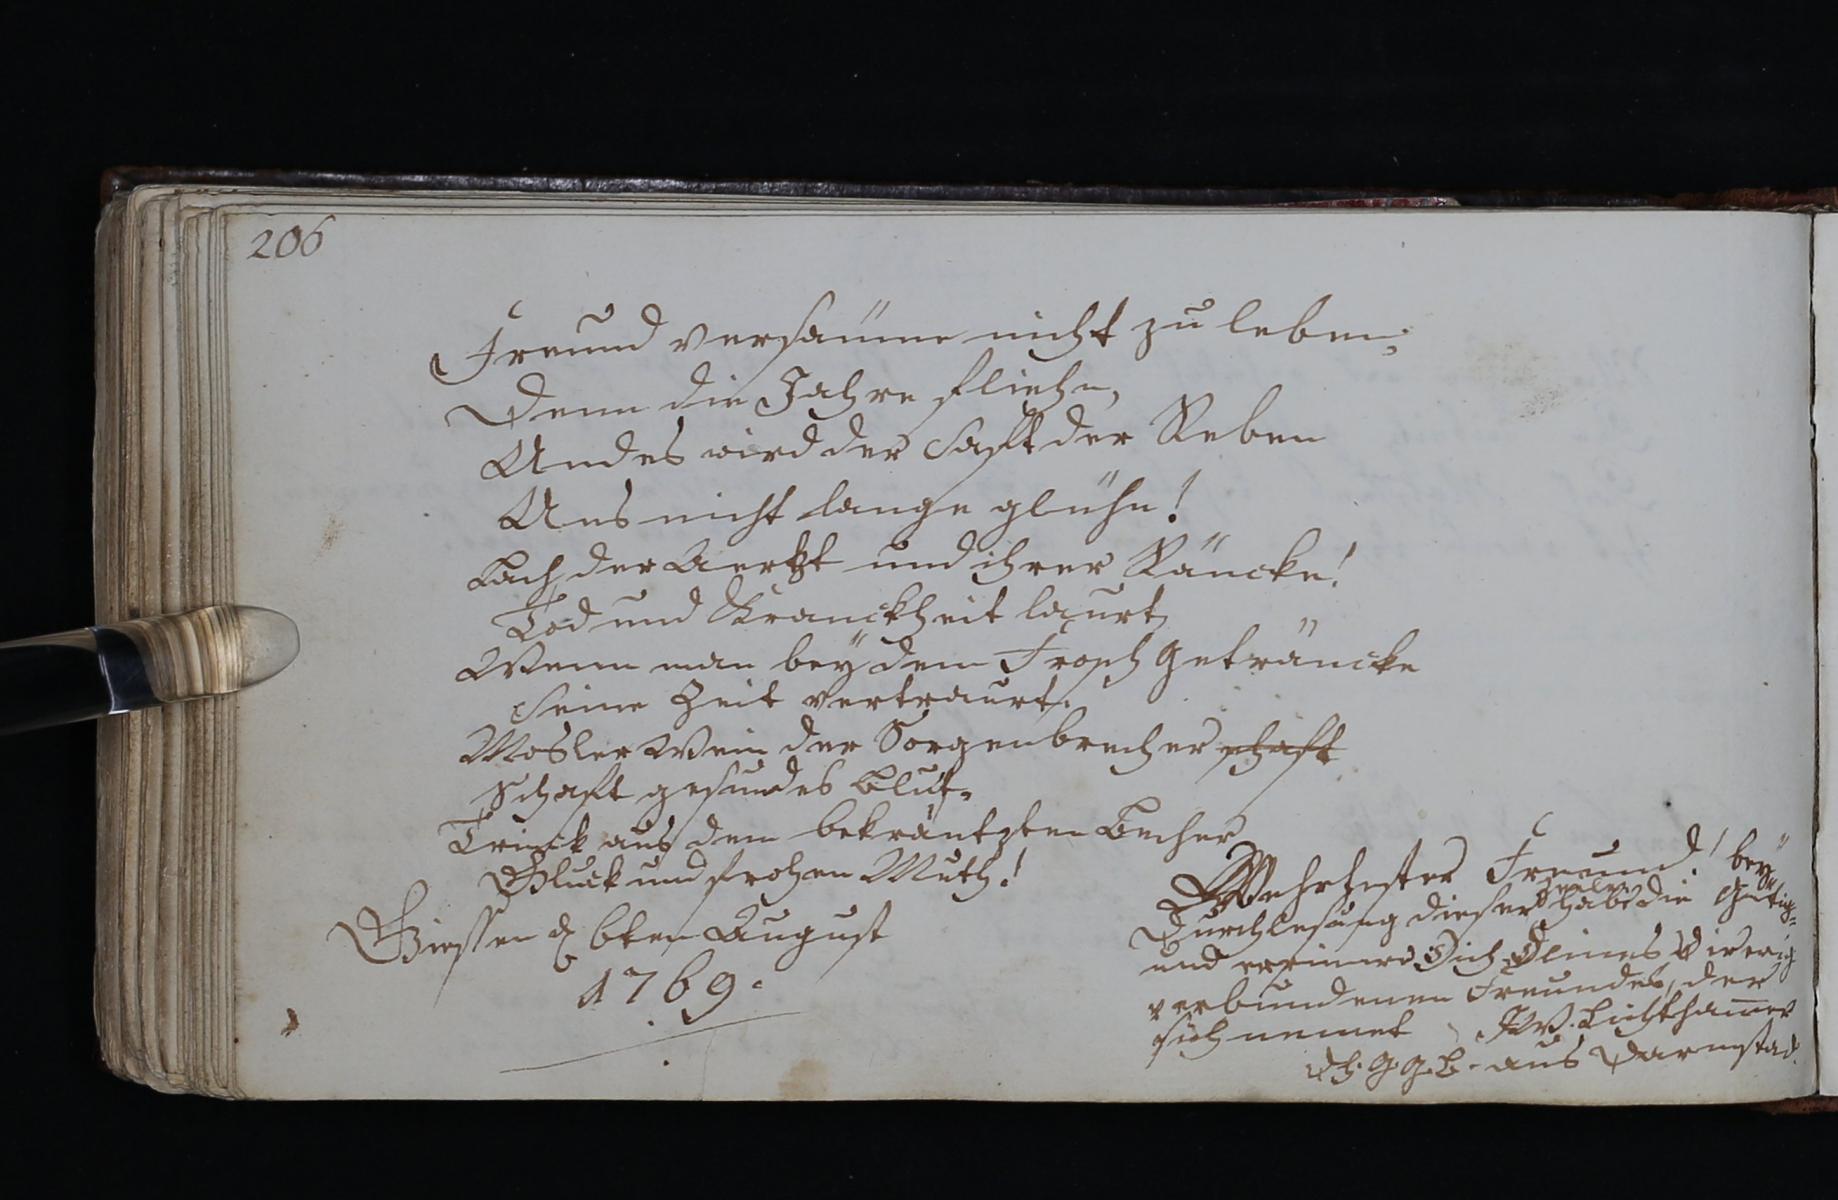 206
Freund versäume nicht zu leben;
Denn die Jahre fliehn,
Und es wird der Saft der Reben
Uns nicht lange glühn!
Lach der Aertzt und ihrer Räncke!
Tod und Kranckheit laurt,
Wenn man beÿ dem Frosch Geträncke
seine Zeit vertraurt.
Mosler Wein der Sorgenbrecher schaft
Schaft gesundes Blut,
Trinck aus dem bekräntzten Becher
Gluck und frohen Muth!
Giessen d 6ten August
1769.
Wehrtester Freund! beÿ
Durchlesung dieser Zeilen habe die Gütig=
und errinnre Dich Deines Dir ewig
verbundenen Freundes, der
sich nennet J. W. Lichthamer
d. G. G. B. aus Darmstad.